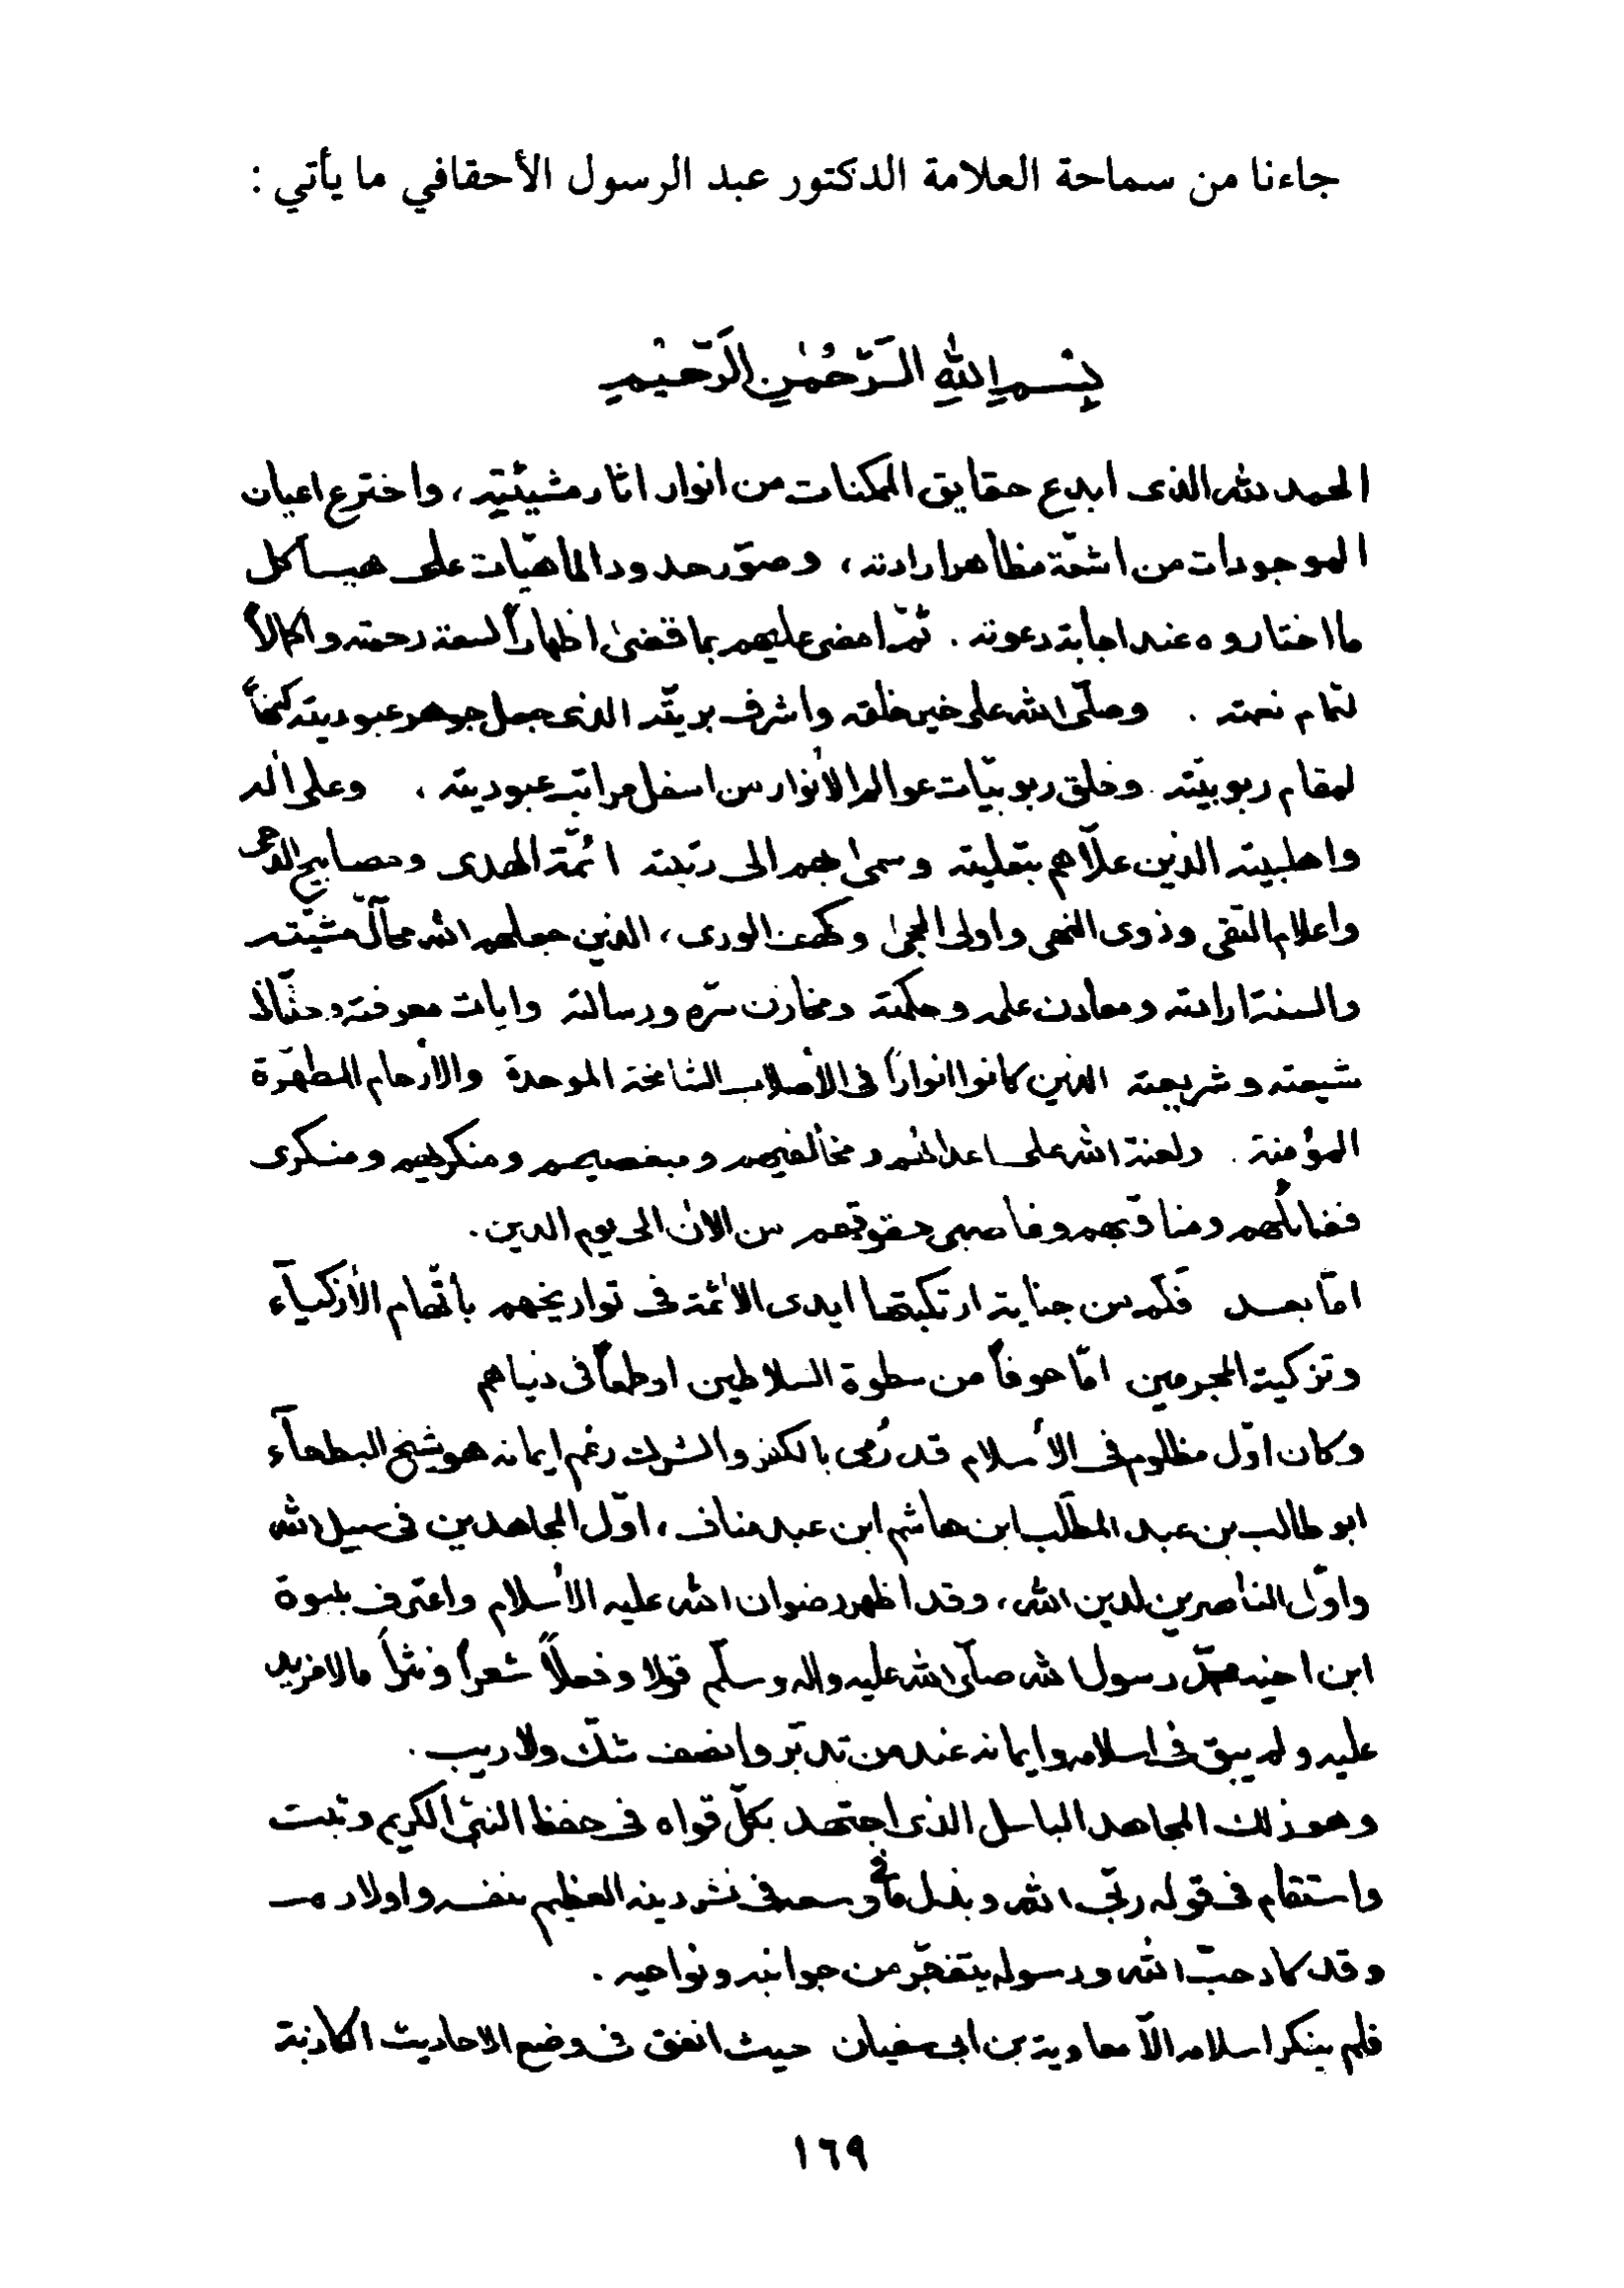 جاءنا من سماحة العلامة الدكتور عبد الرسول الأحقافي ما يأتي :
بِسْمِ اللهِ الرَّحْمٰنِ الرَّحيْمِ
الحمد لله الذى ابدع حقايق الممكنات من انوار اثار مشيئته ، واخترع اعيان
الموجودات من اشعّة مظاهر ارادته ، وصوّر حدود الماهيّات على هياكل
ما اختاروه عند اجابة دعوته . ثمّ امضى عليهم بما قضىٰ اظهاراً لسعة رحمته واكمالاً
لتمام نعمته . وصلّى الله على خير خلقه واشرف بريّته الذى جعل جوهر عبوديته كنهاً
لمقام ربوبيّته وخلق ربوبيّات عوالم الأنوار من اسفل مراتب عبوديته . وعلى اٰله
واهلبيته الذين علّاهم بتعليته وسمىٰ بهم الى رتبته ائمّة الهدى ومصابيح الدجى
واعلام التقى وذوى النهى واولى الحجىٰ وكهف الورى ، الذين جعلهم الله محآلّ مشيّته
والسنة ارادته ومعادن علمه وحكمته ومخازن سرّه ورسالته وايات معرفته وحفّاظ
شيعته وشريعته الذين كانوا انواراً فى الأصلاب الشامخة الموحدة والأرحام المطهّرة
المؤمنة . ولعنة الله على اعدائهم ومخالفيهم ومبغضيهم ومنكريهم ومنكرى
فضائلهم ومناقبهم وغاصبى حقوقهم من الان الى يوم الدين .
امّا بعد فكم من جناية ارتكبتها ايدى الأثمة فى تواريخهم باتّهام الأزكيآء
وتزكية المجرمين امّا خوفاً من سطوة السلاطين او طمعاً فى دنياهم
وكان اوّل مظلوم فى الأسلام قد رُمى بالكفر والشرك رغم ايمانه هو شيخ البطحآء
ابو طالب بن عبد المطّلب ابن هاشم ابن عبد مناف ، اوّل المجاهدين فى سبيل الله
واوّل الناصرين لدين الله ، وقد اظهر رضوان الله عليه الأسلام واعترف بنبوة
ابن اخيه محمّد رسول الله صلّى الله عليه واله وسلّم قولا وفعلاً شعراً ونثراً ما لا مزيد
عليه ولم يبق فى اسلامه وايمانه عند من تدبّر وانصف شكّ ولا ريب .
وهو ذلك المجاهد الباسل الذى اجتهد بكلّ قواه فى حفظ النبىّ الكريم وثبت
واستقام فى قوله ربّى الله وبذل ما فى وسعه فى نشر دينه العظيم بنفسه واولاده
وقد كاد حبّ الله ورسوله يتفجّر من جوانبه ونواحيه .
فلم ينكر اسلامه الّا معاوية بن ابى سفيان حيث انفق فى وضع الاحاديث الكاذبة
١٦٩